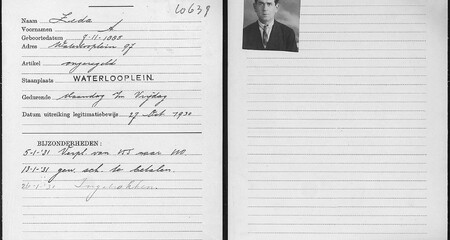 60639
Naam
Voornamen A
Geboortedatum 9-11-
Adres Waterlooplein 97
Artikel ongeregeld
Staanplaats WATERLOOPLEIN.
Gedurende Maandag t/m Vrijdag
Datum uitreiking legitimatiebewijs 27 Oct 1930
BIJZONDERHEDEN:
5-1-'31 Verpl. van 455 naar
13-1-'31 gew. sch. te betalen.
26-1-'31 Ingetrokken.